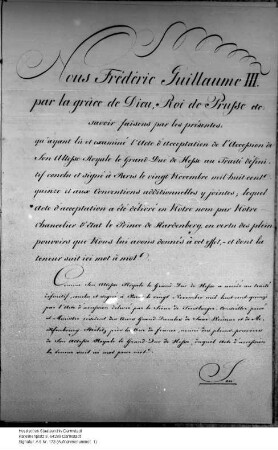 Nous Frédéric Guillaume III.
par la grâce de Dieu, Roi de Prusse &c
savoir faisons par les présentes,
qu'ayant lû et examiné l'Acte d'Acceptation de l'Accession de
Son Altesse Royale le Grand-Duc de Hesse au Traité défini-
tif conclu et signé à Paris le vingt Novembre mil huit cent
quinze et aux Conventions additionnelles y jointes, lequel
Acte d'acceptation a été délivré en Notre nom par Notre
Chancelier d'Etat le Prince de Hardenberg, en vertu des plein
pouvoirs que Nous lui avons donnés à cet effet, et dont la
teneur suit ici mot à mot:
Comme Son Altesse Royale le Grand Duc de Hesse a accédé au traité
définitif conclu et signé à Paris le vingt Novembre mil huit cent quinze
par l'Acte d'accession délivré par le
et Ministre résident des Cours Grand Ducales de Saxe Weimar et de
près la Cour de france, muni des pleins pouvoirs
de Son Altesse Royale le Grand Duc de Hesse, duquel Acte d'accession
la teneur suit ici mot pour mot: